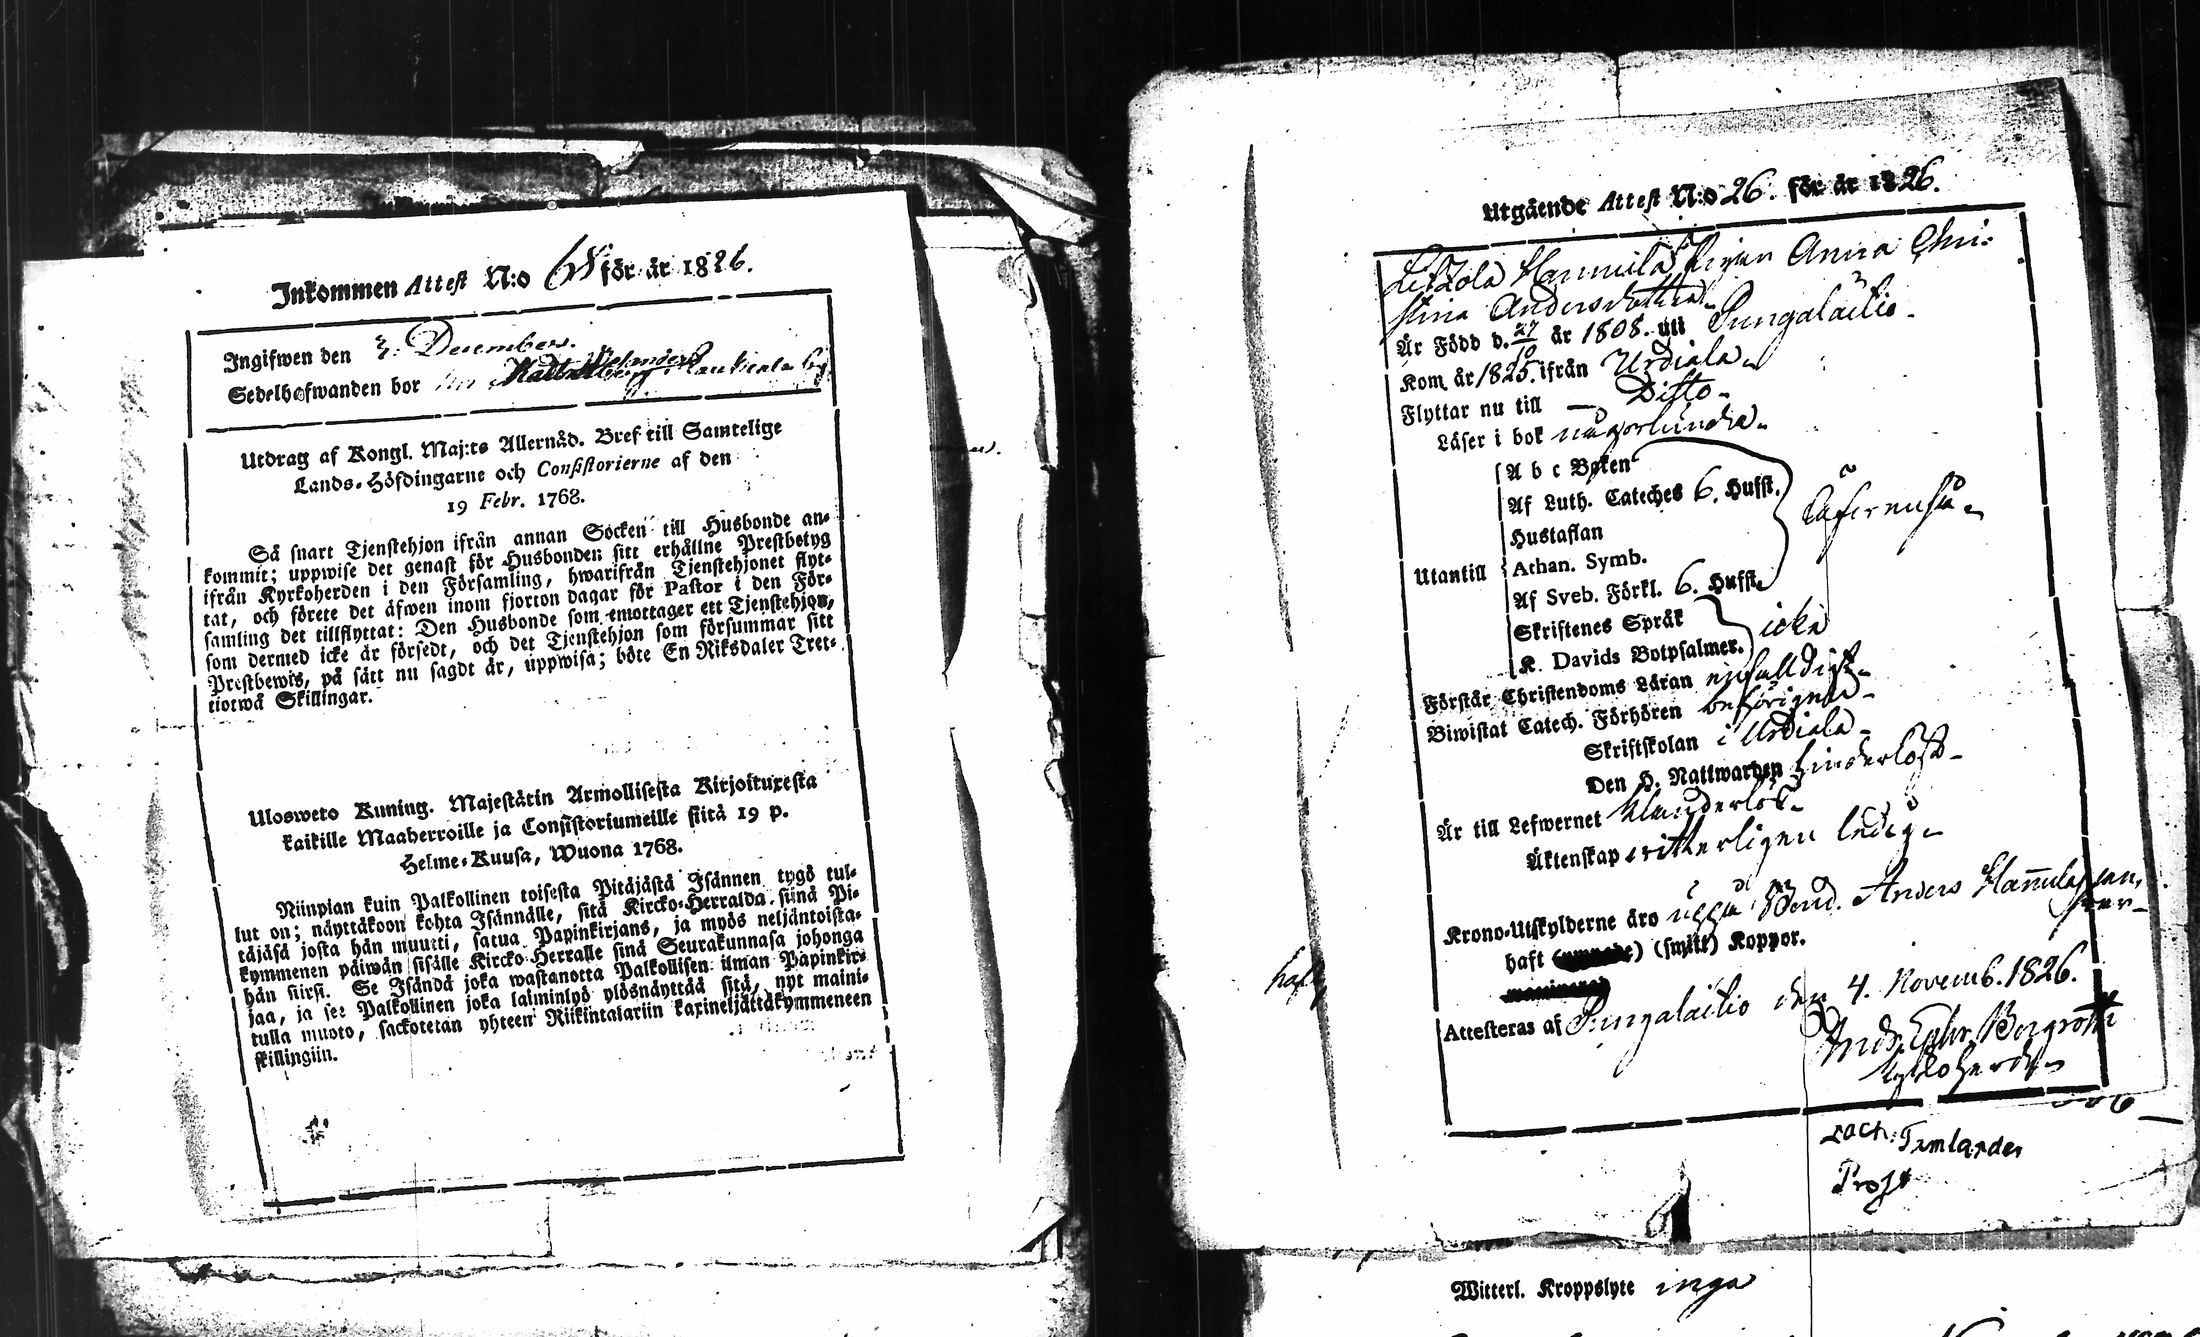 Inkommen Attest N:o för år 1826.
Ingifwen den 3. December.
Sedelhafwanden bor
Utdrag af Kongl. Maj:ts Allernåd. Bref till Samtelige
Lands-Höfdingarne och Consistorierne af den
19 Febr. 1768.
Så snart Tjenstehjon ifrån annan Socken till Husbonde an-
kommit; uppwise det genast för Husbonden sitt erhållne Prestbetyg
ifrån Kyrkoherden i den Församling, hwarifrån Tjenstehjonet flyt-
tat, och förete det äfwen inom fjorton dagar för Pastor i den För-
samling det tillflyttat: Den Husbonde som emottager ett Tjenstehjon,
som dermed icke är försedt, och det Tjenstehjon som försummar sitt
Prestbewis, på sätt nu sagdt är, uppwisa; böte En Riksdaler Tret-
tiotwå Skillingar.
Ulosweto Kuning. Majestätin Armollisesta Kirjoituxesta
kaikille Maaherroille ja Consistoriumeille siitä 19 p.
Helme-Kuusa, Wuona 1768.
Niinpian kuin Palkollinen toisesta Pitäjästä Isännen tygö tul-
lut on; näyttäkoon kohta Isännälle, sitä Kircko-Herralda siinä Pi-
täjäsä josta hän muutti, satua Papinkirjans, ja myös neljäntoista-
kymmenen päiwän sisälle Kircko-Herralle siinä Seurakunnasa johonga
hän siirsi. Se Isändä joka wastanotta Palkollisen ilman Papinkir-
jaa, ja se Palkollinen joka laiminlyö ylösnäyttää sitä, nyt maini-
tulla muoto, sackotetan yhteen Riikintalariin kaxineljättäkymmeneen
skillingiin.
Utgående Attest N:o 26. för år 1826.
Hannula Pigan Anna Chri-
stina Andersdotter
Är Född d. 27/10 år 1808. uti Pungalaitio.
Kom år 1825. ifrån Urdiala
Flyttar nu till — Ditto
Läser i bok någorlunda
A b c Boken
Af Luth. Cateches 6. Hufst.
Hustaflan
Utantill Athan. Symb.
Af Sveb. Förkl. 6. Hufst.
Skriftenes Språk
K. Davids Botpsalmer. icke
Förstår Christendoms Läran enfaldigt
Biwistat Catech. Förhören behörigen
Skriftskolan i Urdiala
Den H. Nattwarden hinderlöst
Är till Lefwernet klanderlös
Äktenskap witterligen ledig
Krono-Utskylderne äro Bond. Anders Hannula
haft (smitt) Koppor.
haft
Attesteras af Pungalaitio den 4. Novemb. 1826.
And. Ephr. Bergroth
Kyrkoherde
Prost
Witterl. Kroppslyte inga